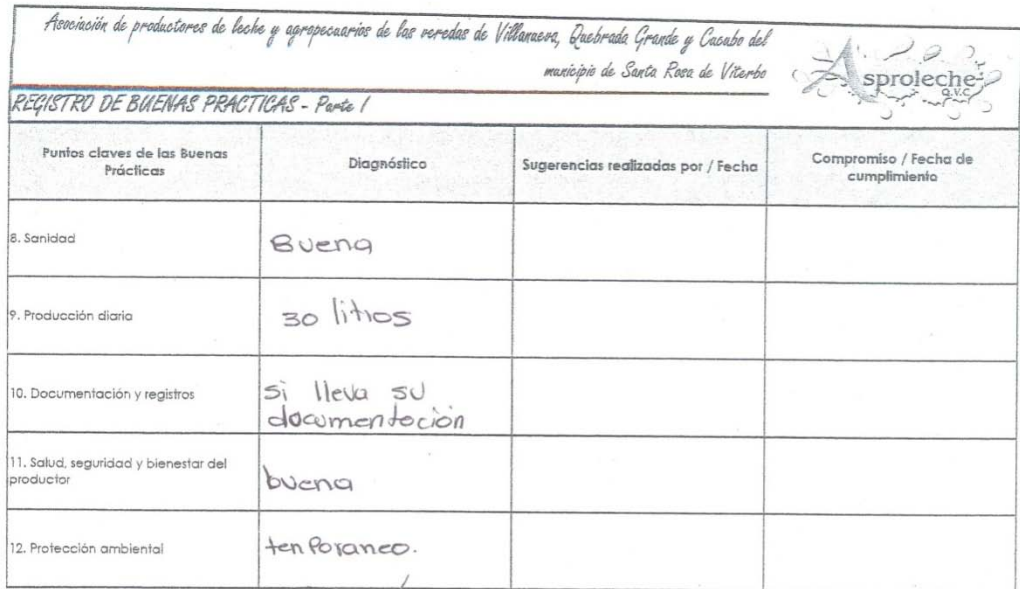 Asociación de productores de leche y agropecuarios de las veredas de Villanueva, Quebrada Grande y Cucubo del
municipio de Santa Rosa de Viterbo
Asproleche
Q.V.C
REGISTRO DE BUENAS PRACTICAS - Parte I
Puntos claves de las Buenas
Prácticas
Diagnóstico
Sugerencias realizadas por / Fecha
Compromiso / Fecha de
cumplimiento
8. Sanidad
Buena
9. Producción diaria
30 litros
10. Documentación y registros
si lleva su
documentoción
11. Salud, seguridad y bienestar del
productor
buena
12. Protección ambiental
tenporaneo.